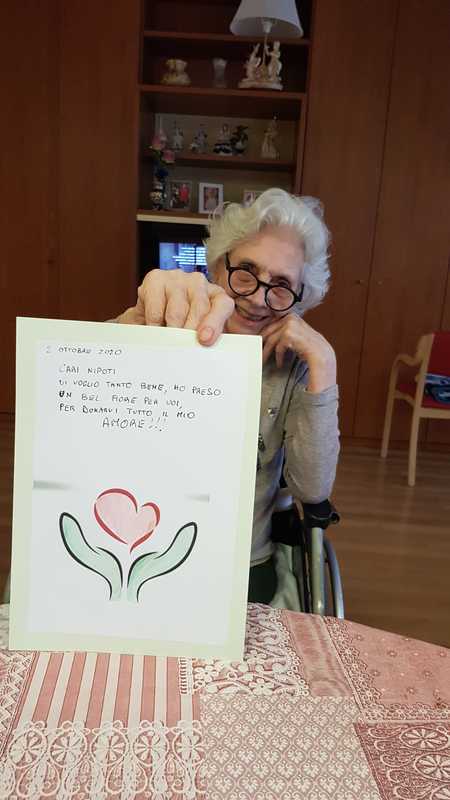 2 OTTOBRE 2020
CARI NIPOTI
VI VOGLIO TANTO BENE, HO PRESO
UN BEL FIORE PER VOI,
PER DONARVI TUTTO IL MIO
AMORE!!!